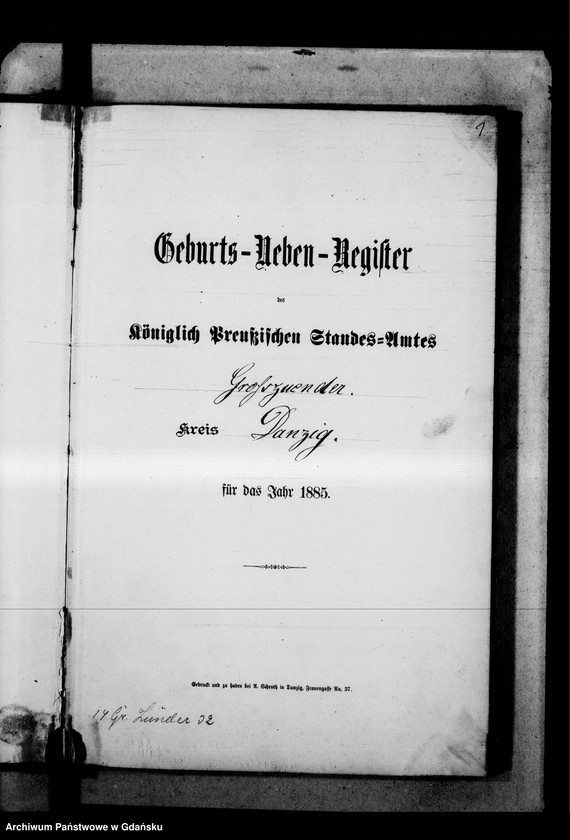 1
Geburts-Neben-Register
des
Königlich Preußischen Standes-Amtes
Grosszuender.
Kreis Danzig.
für das Jahr 1885.
Gedruckt und zu haben bei A. Schroth in Danzig, Frauengasse No. 37.
14 Gr. Zünder 32
Archiwum Państwowe w Gdańsku